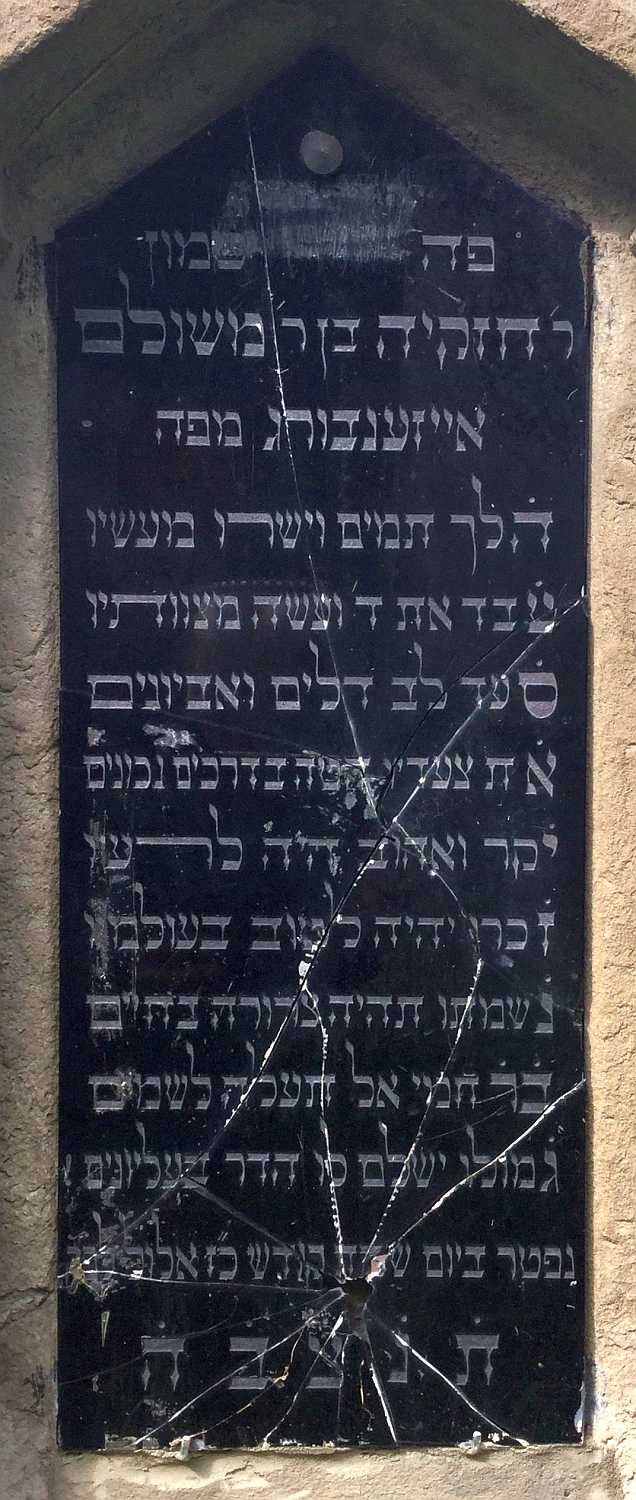 פה טמון
ר חזקיה בן ר משולם
אייזענבורג מפה
הלך תמים וישרו מעשיו
עבד את ד ועשה מצוותיו
סעד לב דלים ואביונים
את צעדיו נטה בדרכים נכונים
יקר ואהוב היה לרעיו
זכרו יהיה לטוב בעולמו
נשמתו תהיה צרורה בחיים
בר חמי אל תעלה לשמים
גמולו ישלם סו הדר בעליונים
נפטר ביום שבת קודש כז אלול
ת נ צ ב ה